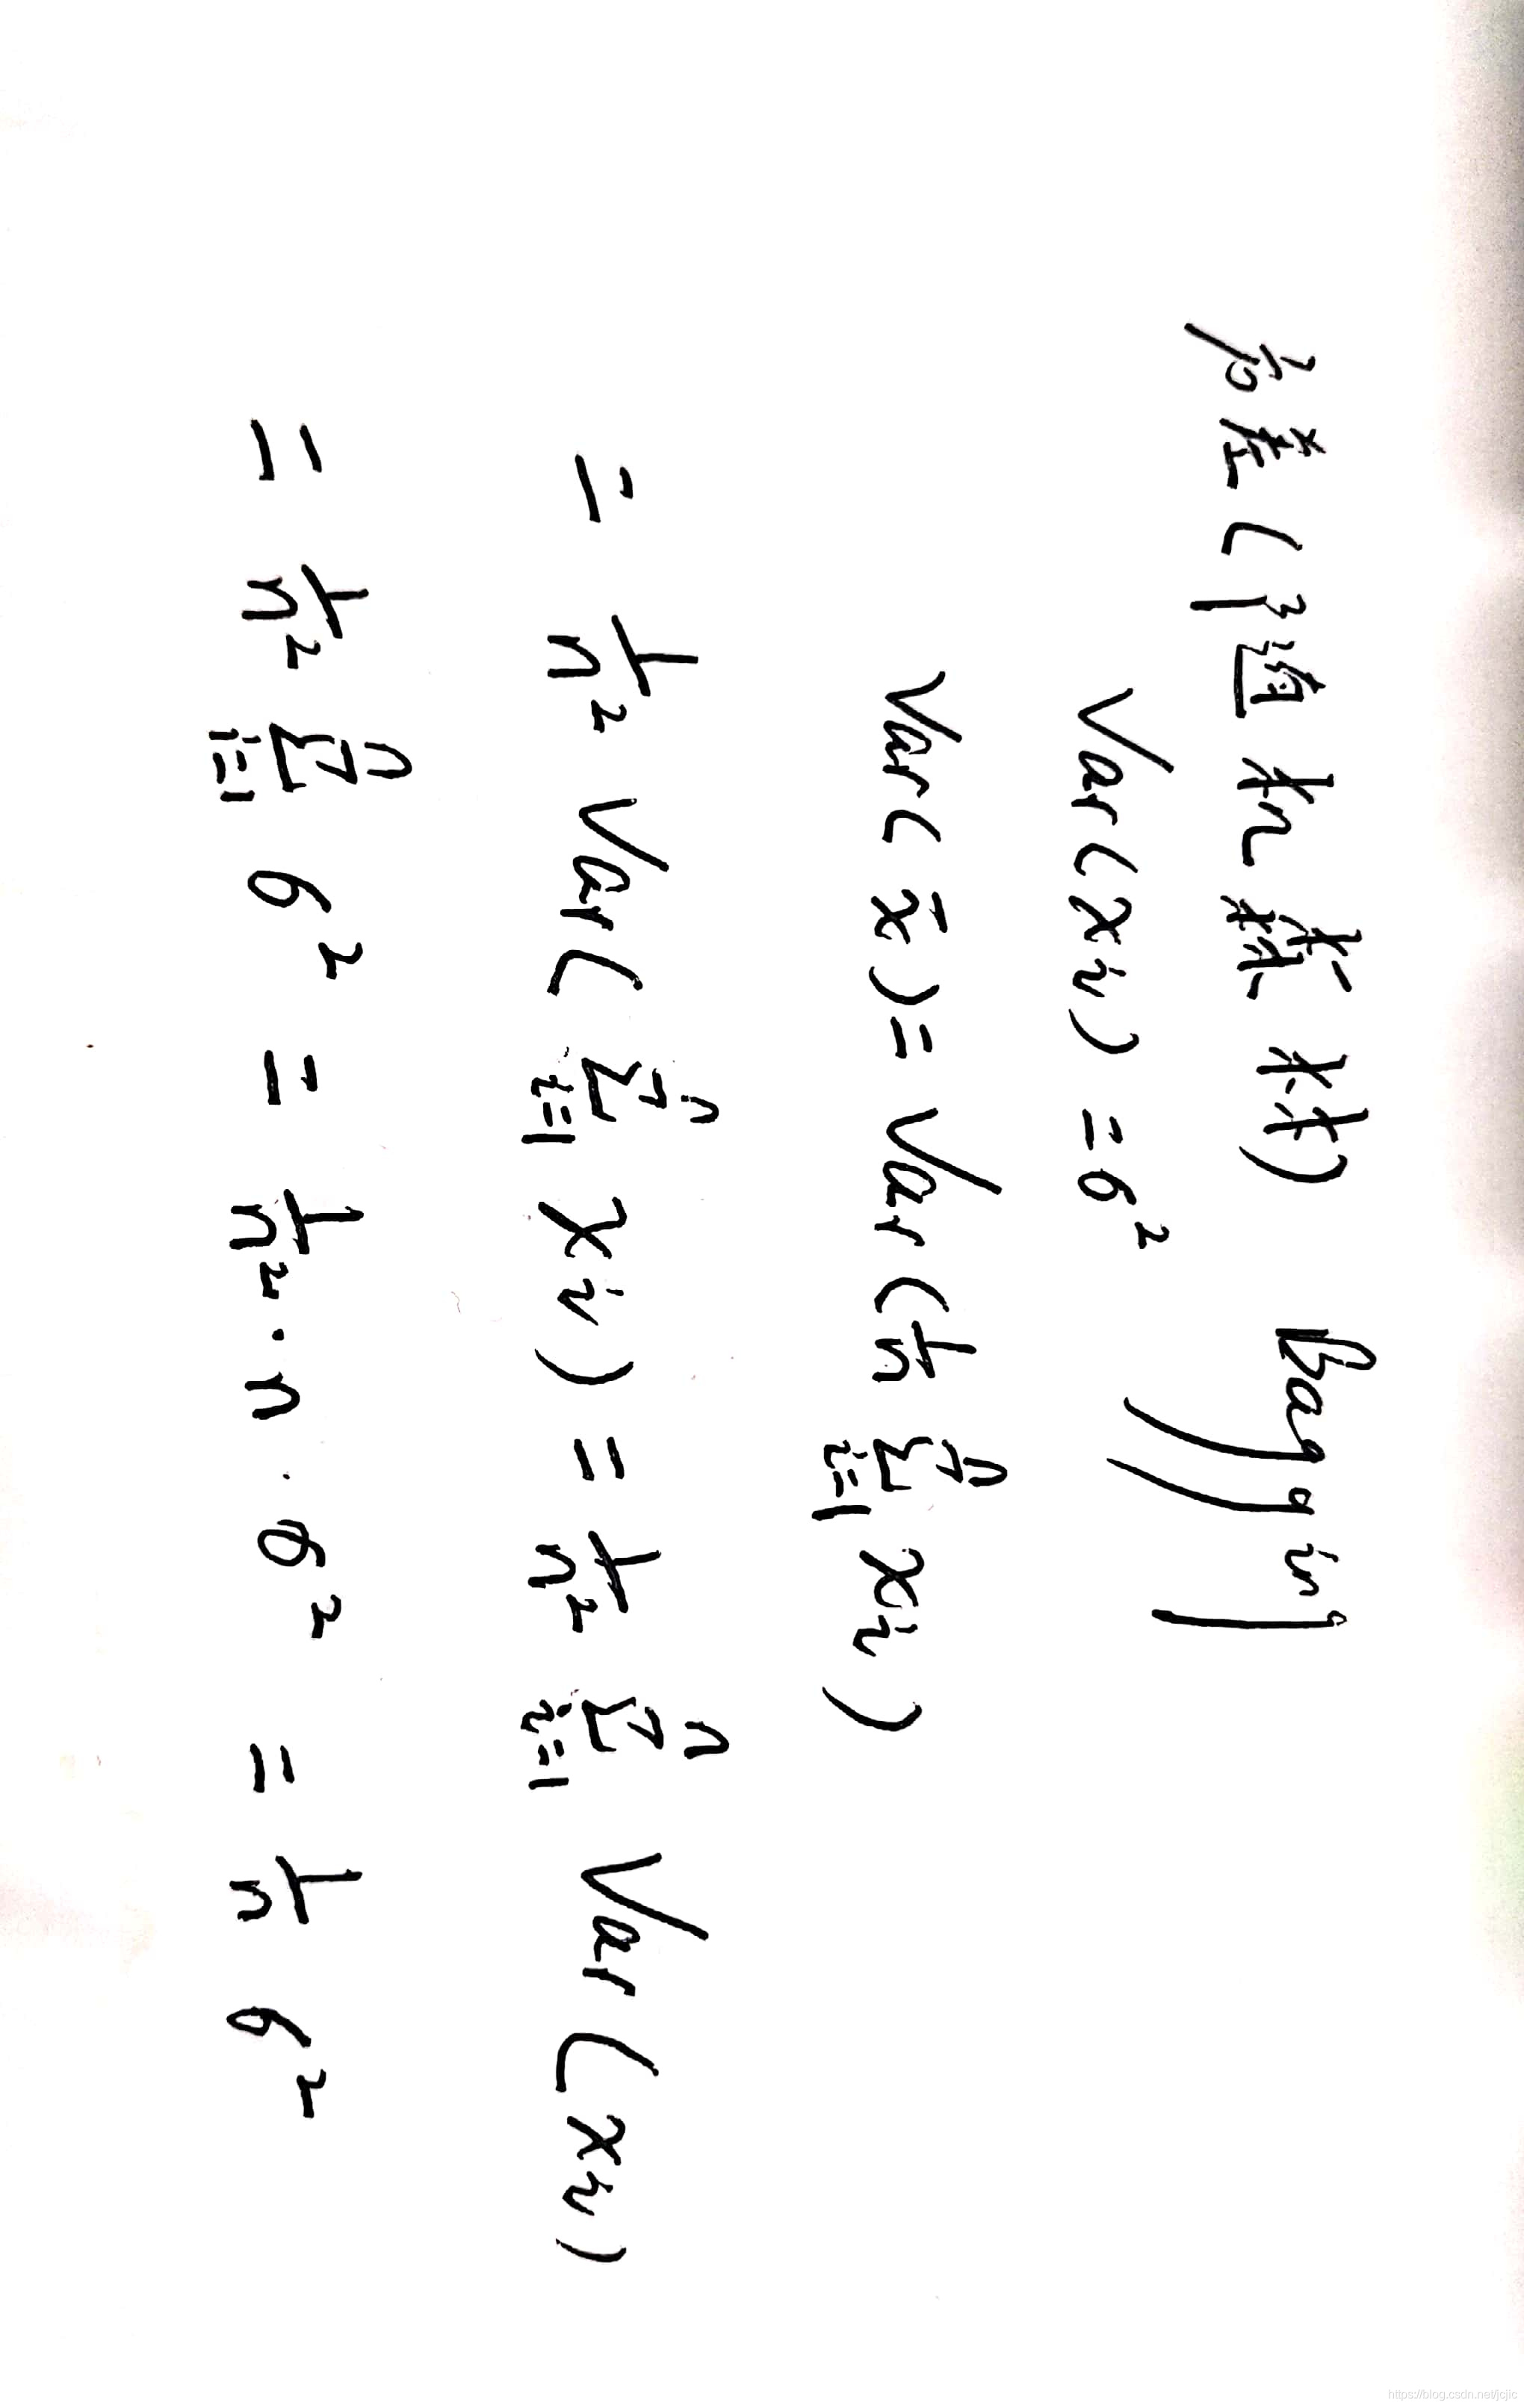 方差(随机森林) Bagging
Var(xi) = σ²
Var(x̄) = Var(1/n ∑ⁿᵢ₌₁ xi)
= 1/n² Var(∑ⁿᵢ₌₁ xi) = 1/n² ∑ⁿᵢ₌₁ Var(xi)
= 1/n² ∑ⁿᵢ₌₁ σ² = 1/n² · n · σ² = 1/n σ²
https://blog.csdn.net/jcjic